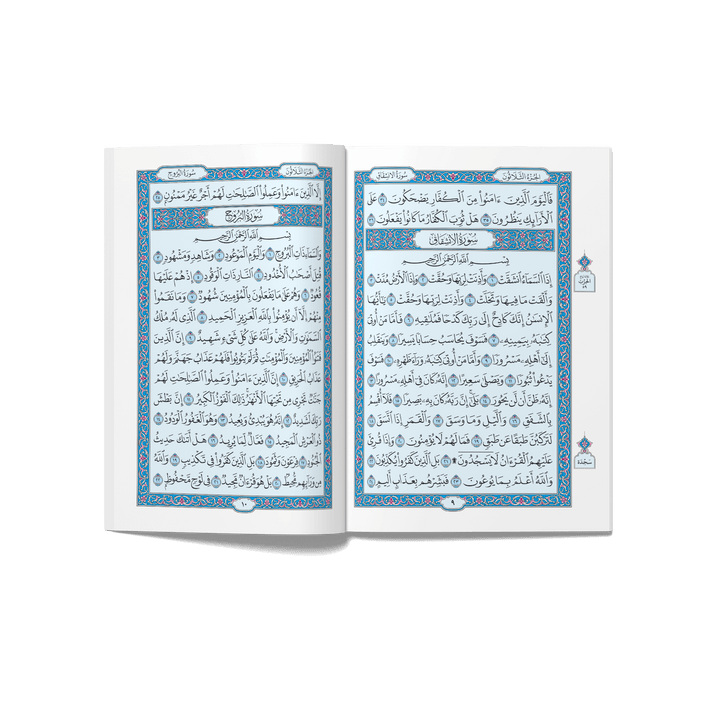 الجُزءُ الثَّلَاثُونَ
سُورَةُ الانشِقَاقِ
فَالْيَوْمَ الَّذِينَ ءَامَنُوا۟ مِنَ الْكُفَّارِ يَضْحَكُونَ ٣٤ عَلَى
الْأَرَآئِكِ يَنظُرُونَ ٣٥ هَلْ ثُوِّبَ الْكُفَّارُ مَا كَانُوا۟ يَفْعَلُونَ ٣٦
سُورَةُ الانشِقَاقِ
بِسْمِ اللَّهِ الرَّحْمَٰنِ الرَّحِيمِ
إِذَا السَّمَآءُ انشَقَّتْ ١ وَأَذِنَتْ لِرَبِّهَا وَحُقَّتْ ٢ وَإِذَا الْأَرْضُ مُدَّتْ ٣
وَأَلْقَتْ مَا فِيهَا وَتَخَلَّتْ ٤ وَأَذِنَتْ لِرَبِّهَا وَحُقَّتْ ٥ يَٰٓأَيُّهَا
الْإِنسَٰنُ إِنَّكَ كَادِحٌ إِلَىٰ رَبِّكَ كَدْحًا فَمُلَٰقِيهِ ٦ فَأَمَّا مَنْ أُوتِىَ
كِتَٰبَهُۥ بِيَمِينِهِۦ ٧ فَسَوْفَ يُحَاسَبُ حِسَابًا يَسِيرًا ٨ وَيَنقَلِبُ
إِلَىٰٓ أَهْلِهِۦ مَسْرُورًا ٩ وَأَمَّا مَنْ أُوتِىَ كِتَٰبَهُۥ وَرَآءَ ظَهْرِهِۦ ١٠ فَسَوْفَ
يَدْعُوا۟ ثُبُورًا ١١ وَيَصْلَىٰ سَعِيرًا ١٢ إِنَّهُۥ كَانَ فِىٓ أَهْلِهِۦ مَسْرُورًا ١٣
إِنَّهُۥ ظَنَّ أَن لَّن يَحُورَ ١٤ بَلَىٰٓ إِنَّ رَبَّهُۥ كَانَ بِهِۦ بَصِيرًا ١٥ فَلَآ أُقْسِمُ
بِالشَّفَقِ ١٦ وَالَّيْلِ وَمَا وَسَقَ ١٧ وَالْقَمَرِ إِذَا اتَّسَقَ ١٨
لَتَرْكَبُنَّ طَبَقًا عَن طَبَقٍ ١٩ فَمَا لَهُمْ لَا يُؤْمِنُونَ ٢٠ وَإِذَا قُرِئَ
عَلَيْهِمُ الْقُرْءَانُ لَا يَسْجُدُونَ ۩ ٢١ بَلِ الَّذِينَ كَفَرُوا۟ يُكَذِّبُونَ ٢٢
وَاللَّهُ أَعْلَمُ بِمَا يُوعُونَ ٢٣ فَبَشِّرْهُم بِعَذَابٍ أَلِيمٍ ٢٤
٩
سَجْدَة
الجُزءُ الثَّلَاثُونَ
سُورَةُ البُرُوجِ
إِلَّا الَّذِينَ ءَامَنُوا۟ وَعَمِلُوا۟ الصَّٰلِحَٰتِ لَهُمْ أَجْرٌ غَيْرُ مَمْنُونٍ ٢٥
سُورَةُ البُرُوجِ
بِسْمِ اللَّهِ الرَّحْمَٰنِ الرَّحِيمِ
وَالسَّمَآءِ ذَاتِ الْبُرُوجِ ١ وَالْيَوْمِ الْمَوْعُودِ ٢ وَشَاهِدٍ وَمَشْهُودٍ ٣
قُتِلَ أَصْحَٰبُ الْأُخْدُودِ ٤ النَّارِ ذَاتِ الْوَقُودِ ٥ إِذْ هُمْ عَلَيْهَا
قُعُودٌ ٦ وَهُمْ عَلَىٰ مَا يَفْعَلُونَ بِالْمُؤْمِنِينَ شُهُودٌ ٧ وَمَا نَقَمُوا۟
مِنْهُمْ إِلَّآ أَن يُؤْمِنُوا۟ بِاللَّهِ الْعَزِيزِ الْحَمِيدِ ٨ الَّذِى لَهُۥ مُلْكُ
السَّمَٰوَٰتِ وَالْأَرْضِ وَاللَّهُ عَلَىٰ كُلِّ شَىْءٍ شَهِيدٌ ٩ إِنَّ الَّذِينَ
فَتَنُوا۟ الْمُؤْمِنِينَ وَالْمُؤْمِنَٰتِ ثُمَّ لَمْ يَتُوبُوا۟ فَلَهُمْ عَذَابُ جَهَنَّمَ وَلَهُمْ
عَذَابُ الْحَرِيقِ ١٠ إِنَّ الَّذِينَ ءَامَنُوا۟ وَعَمِلُوا۟ الصَّٰلِحَٰتِ لَهُمْ
جَنَّٰتٌ تَجْرِى مِن تَحْتِهَا الْأَنْهَٰرُ ذَٰلِكَ الْفَوْزُ الْكَبِيرُ ١١ إِنَّ بَطْشَ
رَبِّكَ لَشَدِيدٌ ١٢ إِنَّهُۥ هُوَ يُبْدِئُ وَيُعِيدُ ١٣ وَهُوَ الْغَفُورُ الْوَدُودُ ١٤
ذُو الْعَرْشِ الْمَجِيدُ ١٥ فَعَّالٌ لِّمَا يُرِيدُ ١٦ هَلْ أَتَىٰكَ حَدِيثُ
الْجُنُودِ ١٧ فِرْعَوْنَ وَثَمُودَ ١٨ بَلِ الَّذِينَ كَفَرُوا۟ فِى تَكْذِيبٍ ١٩ وَاللَّهُ
مِن وَرَآئِهِم مُّحِيطٌ ٢٠ بَلْ هُوَ قُرْءَانٌ مَّجِيدٌ ٢١ فِى لَوْحٍ مَّحْفُوظٍ ٢٢
١٠